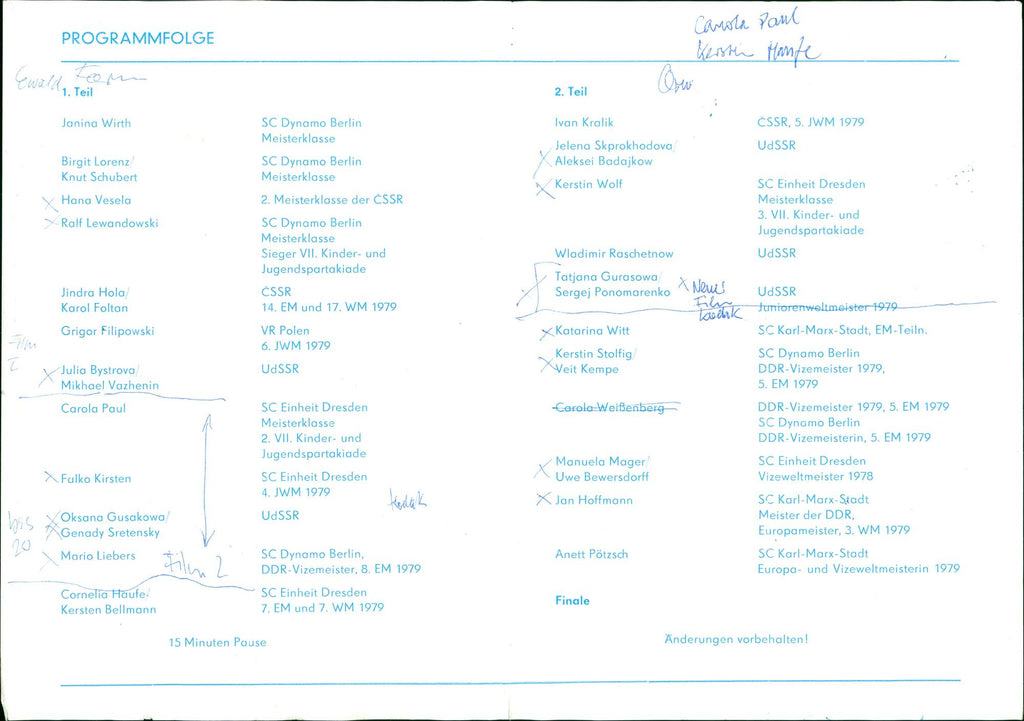 PROGRAMMFOLGE
Carola Paul
Kerstin
Ewald
1. Teil
Janina Wirth SC Dynamo Berlin
Meisterklasse
Birgit Lorenz/ SC Dynamo Berlin
Knut Schubert Meisterklasse
Hana Vesela 2. Meisterklasse der ČSSR
Ralf Lewandowski SC Dynamo Berlin
Meisterklasse
Sieger VII. Kinder- und
Jugendspartakiade
Jindra Hola/ ČSSR
Karol Foltan 14. EM und 17. WM 1979
Grigor Filipowski VR Polen
6. JWM 1979
Film
I
Julia Bystrova/ UdSSR
Mikhael Vazhenin
Carola Paul SC Einheit Dresden
Meisterklasse
2. VII. Kinder- und
Jugendspartakiade
Falko Kirsten SC Einheit Dresden
4. JWM 1979
Kodak
Oksana Gusakowa/ UdSSR
bis Genady Sretensky
20
Mario Liebers SC Dynamo Berlin,
Film 2 DDR-Vizemeister, 8. EM 1979
Cornelia Haufe/ SC Einheit Dresden
Kersten Bellmann 7. EM und 7. WM 1979
15 Minuten Pause
2. Teil
Ivan Kralik ČSSR, 5. JWM 1979
Jelena Skprokhodova/ UdSSR
Aleksei Badajkow
Kerstin Wolf SC Einheit Dresden
Meisterklasse
3. VII. Kinder- und
Jugendspartakiade
Wladimir Raschetnow UdSSR
Tatjana Gurasowa/
Sergej Ponomarenko UdSSR
Juniorenweltmeister 1979
Neues
Film
Kodak
Katarina Witt SC Karl-Marx-Stadt, EM-Teiln.
Kerstin Stolfig/ SC Dynamo Berlin
Veit Kempe DDR-Vizemeister 1979,
5. EM 1979
Carola Weißenberg DDR-Vizemeister 1979, 5. EM 1979
SC Dynamo Berlin
DDR-Vizemeisterin, 5. EM 1979
Manuela Mager/ SC Einheit Dresden
Uwe Bewersdorff Vizeweltmeister 1978
Jan Hoffmann SC Karl-Marx-Stadt
Meister der DDR,
Europameister, 3. WM 1979
Anett Pötzsch SC Karl-Marx-Stadt
Europa- und Vizeweltmeisterin 1979
Finale
Änderungen vorbehalten!